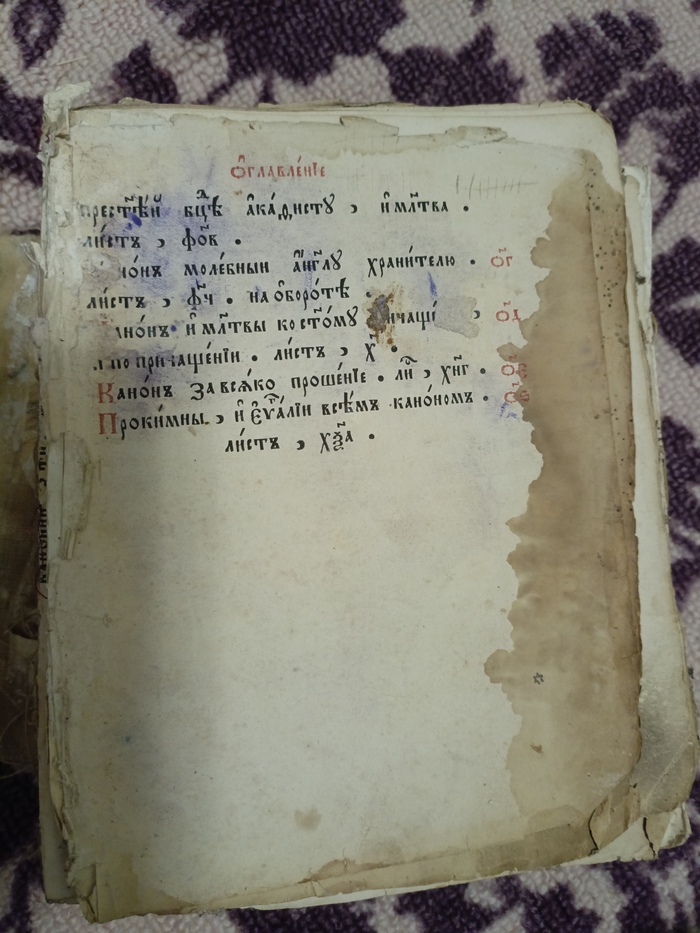 Ѻ҆главле́нїе
прест҃ѣй бц҃ѣ а҆ка́ѳисту , и҆ мл҃тва .
ли́стъ , фо҃в .
но́нъ моле́бныи а҆́нг҃лу храни́телю . ѻ҃г
ли́стъ , фч҃ . на ѻ҆боро́тѣ .
и҆ мл҃твы ко ст҃о́му , ѻ҃д
по причаще́нїи . ли́стъ , х҃ .
Кано́нъ за вся́ко проше́нїе . ли́ , хн҃г .
Проки́мны , и҆ є҆ѵа҃́лїи всѣ́мъ кано́номъ .
ли́стъ , хѯ҃а .